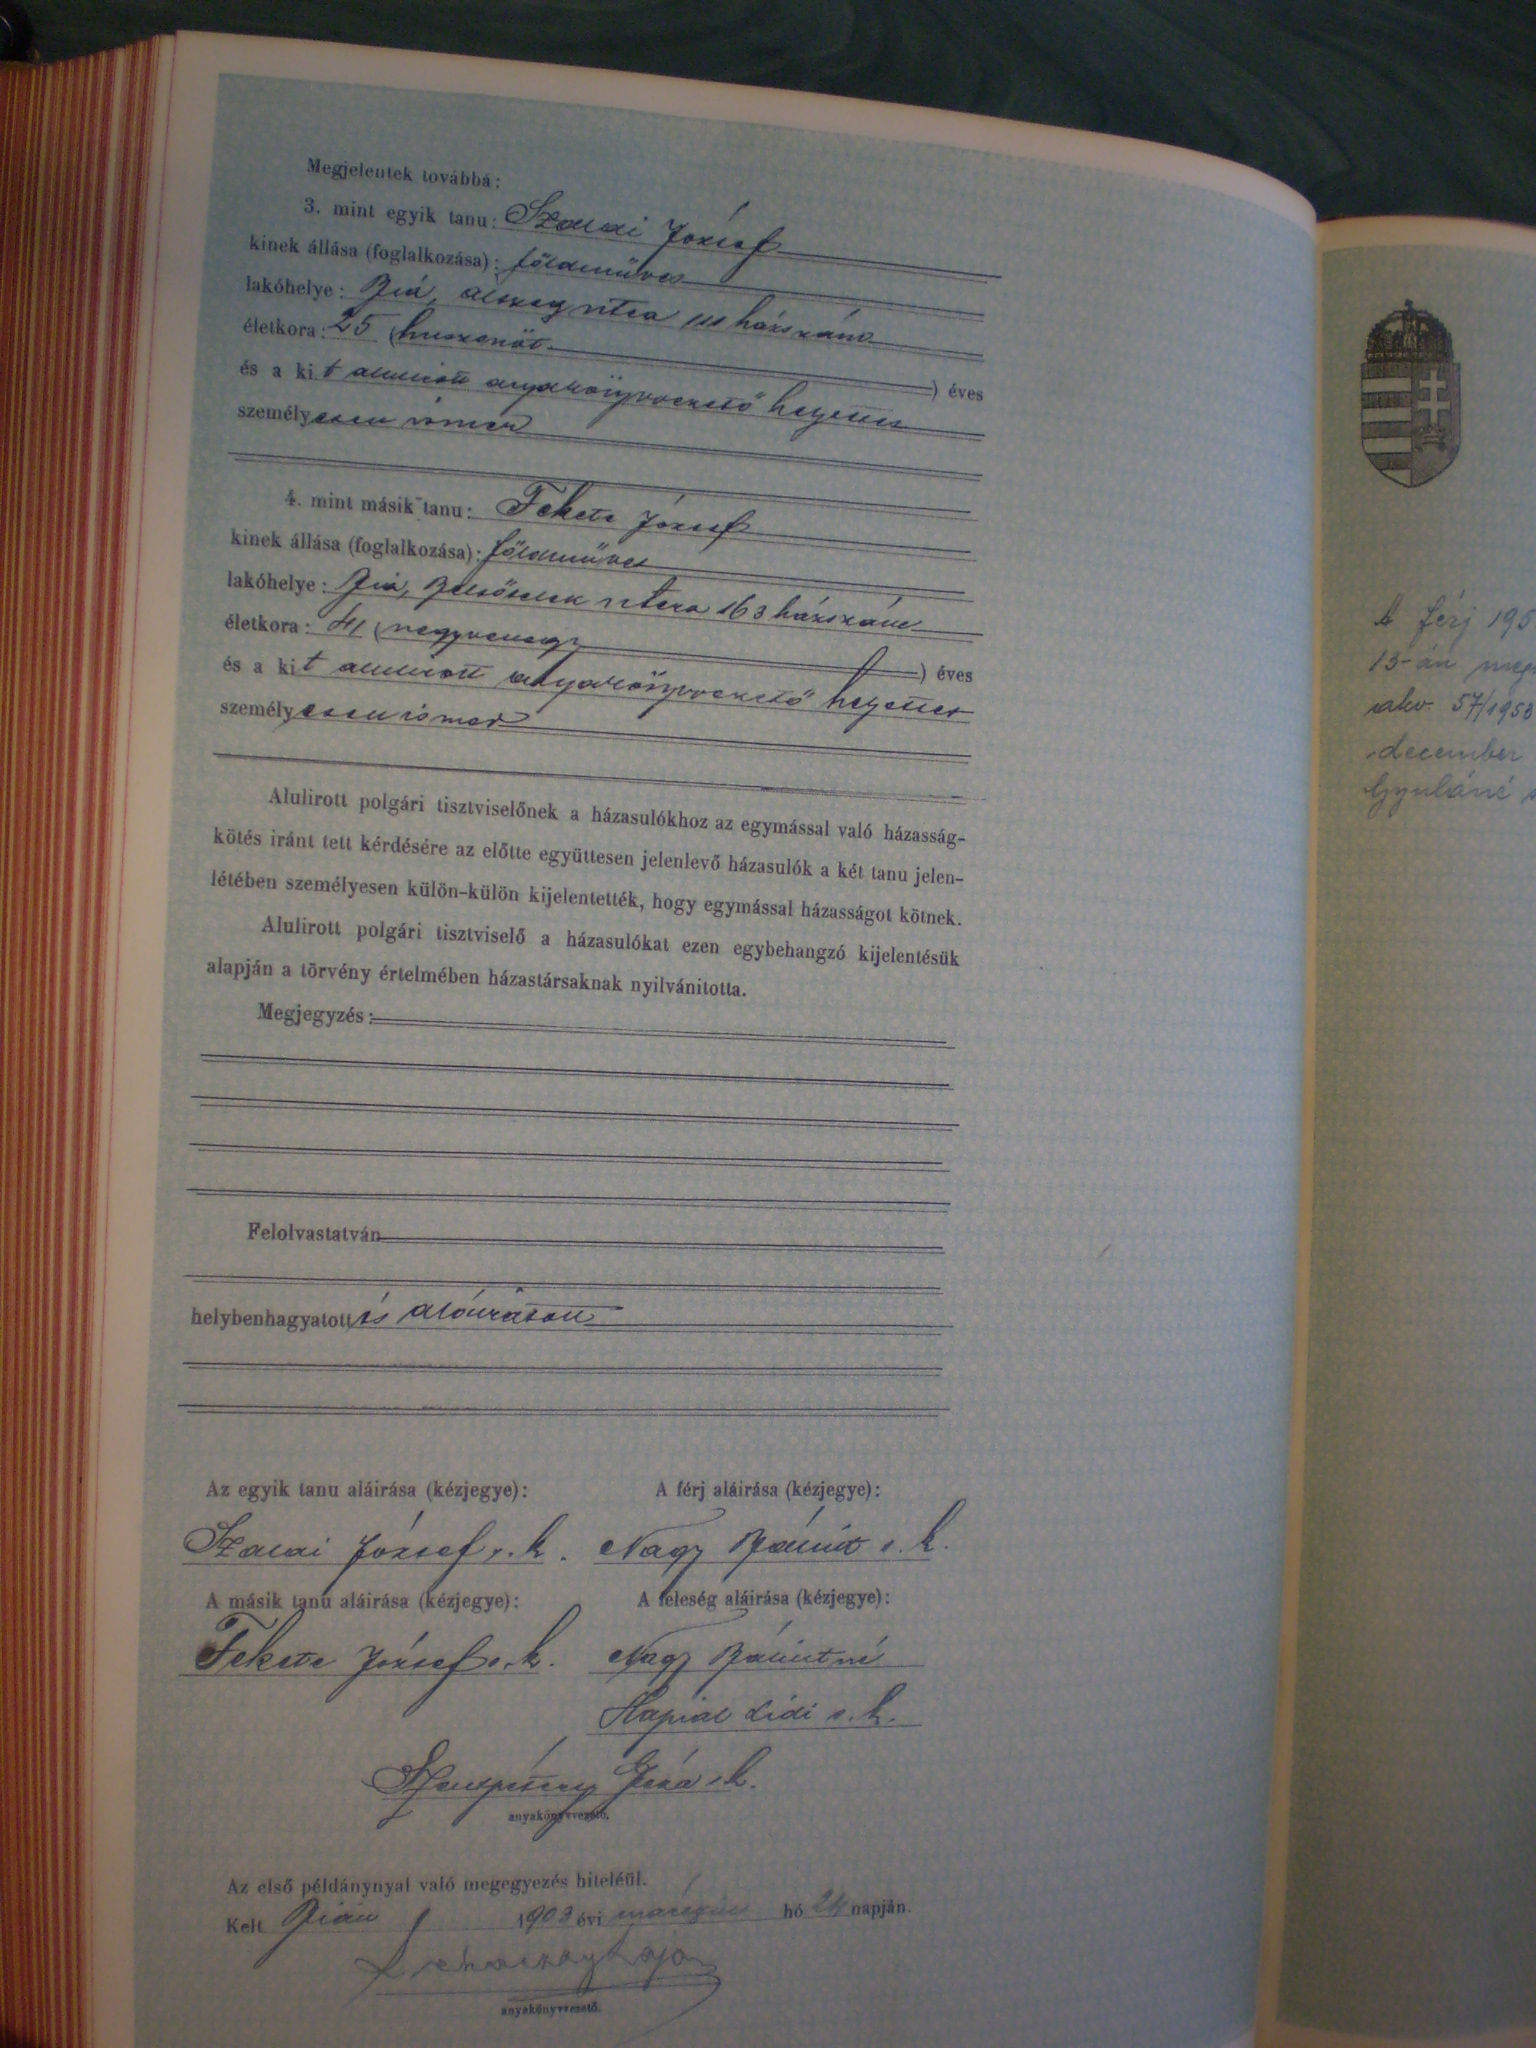 Megjelentek továbbá:
3. mint egyik tanu: Szalai József
kinek állása (foglalkozása): földműves
lakóhelye: Bia, alszeg utca 111 házszám
életkora: 25 (huszonöt ) éves
és a kit alulirott anyakönyvvezető helyettes
személyesen ismer
4. mint másik tanu: Fekete József
kinek állása (foglalkozása): földműves
lakóhelye: Bia, utca 163 házszám
életkora: 41 (negyvenegy ) éves
és a kit alulirott anyakönyvvezető helyettes
személyesen ismer
Alulirott polgári tisztviselőnek a házasulókhoz az egymással való házasság-
kötés iránt tett kérdésére az előtte együttesen jelenlevő házasulók a két tanu jelen-
létében személyesen külön-külön kijelentették, hogy egymással házasságot kötnek.
Alulirott polgári tisztviselő a házasulókat ezen egybehangzó kijelentésük
alapján a törvény értelmében házastársaknak nyilvánitotta.
Megjegyzés:
Felolvastatván
helybenhagyatott és aláiratott
Az egyik tanu aláirása (kézjegye): A férj aláirása (kézjegye):
Szalai József s. k. Nagy Bálint s. k.
A másik tanu aláirása (kézjegye): A feleség aláirása (kézjegye):
Fekete József s. k. Nagy Bálintné
Lidi s. k.
Géza s. k.
anyakönyvvezető.
Az első példánynyal való megegyezés hiteléül.
Kelt Bián 1903 évi márczius hó 24 napján.
anyakönyvvezető.
A férj 195
13-án
akv. 57/1953
december
Gyuláné